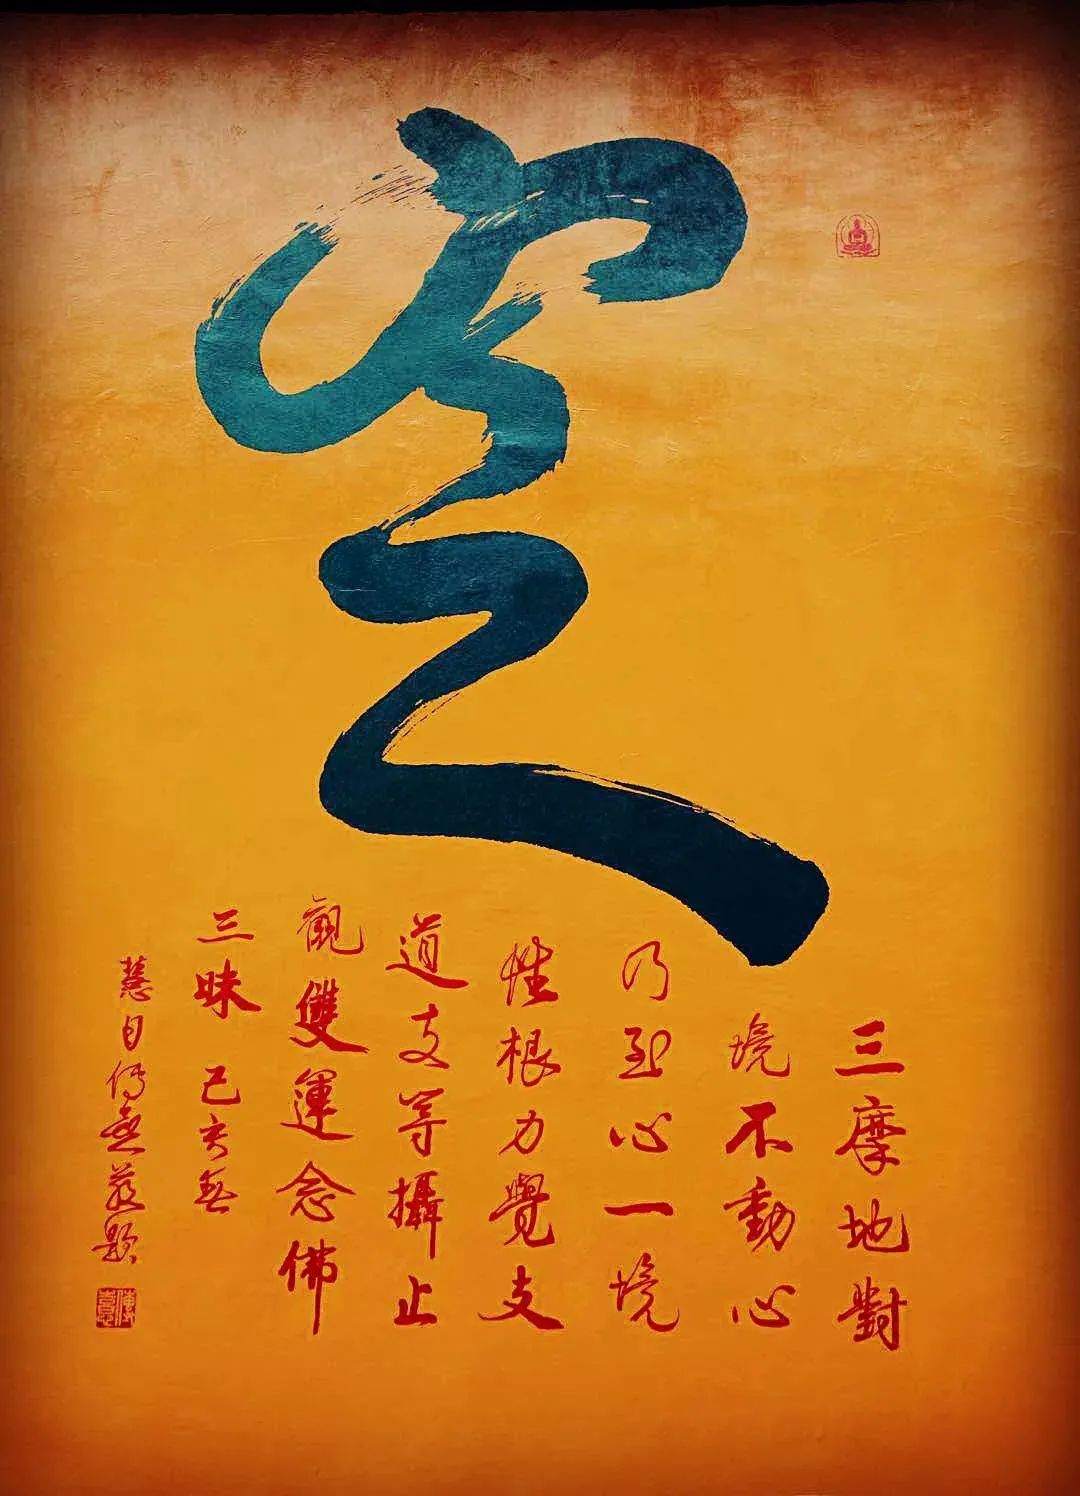 定
三摩地對
境不動心
乃至心一境
性根力覺支
道支等攝止
觀雙運念佛
三昧 己亥
慧目傳題